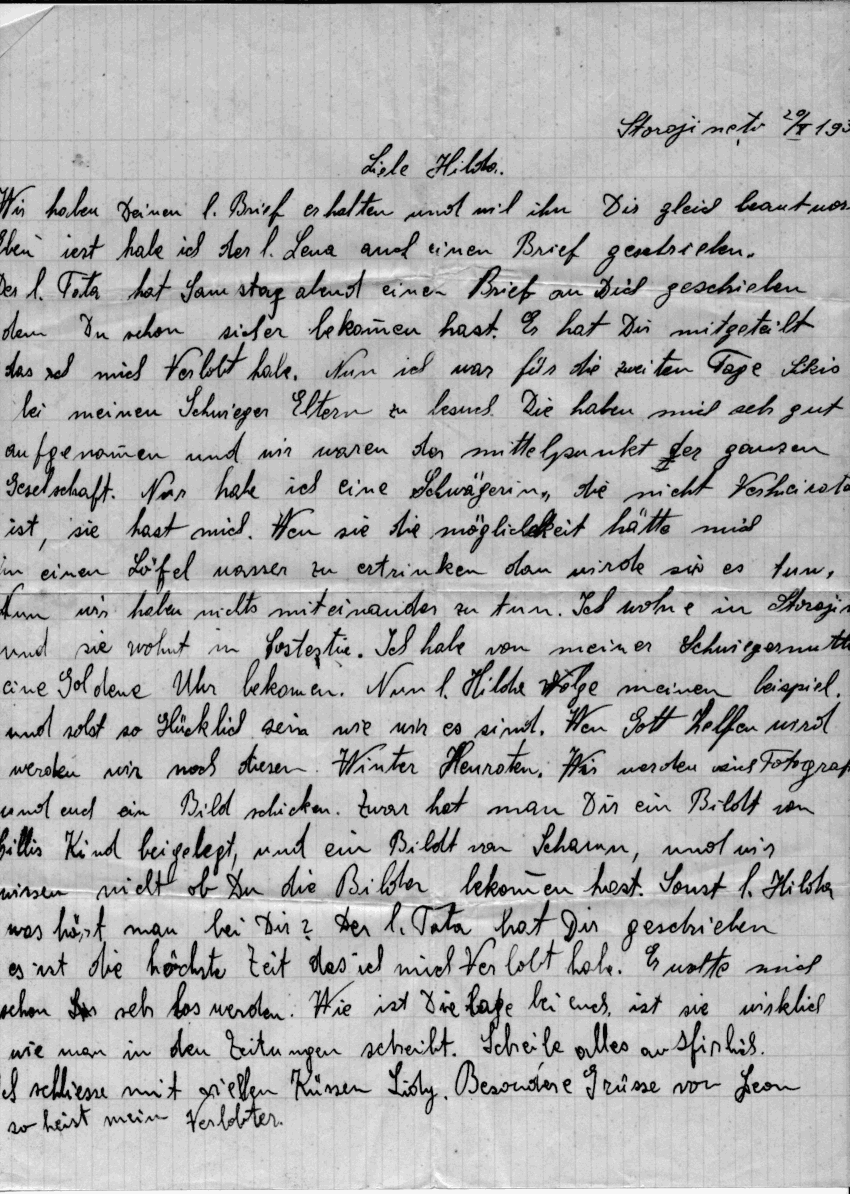 Storojineţ 29/X 193
Liebe Hilda.
Wir haben Deinen l. Brief erhalten und wil ihn Dir gleich beantwor
Eben iezt habe ich der l. Lena auch einen Brief geschrieben.
Der l. Tata hat Samstag abend einen Brief an Dich geschrieben
dem Du schon sicher bekom̄en hast. Er hat Dir mitgeteilt
das ich mich Verlobt habe. Nun ich war für die zweiten Tage
bei meinen Schwieger Eltern zu besuch. Die haben mich seh gut
aufgenom̄en und wir waren der mittelpunkt der ganzen
Geselschaft. Nur habe ich eine Schwägerin, die nicht Verheirate
ist, sie hast mich. Wen sie die möglichkeit hätte mich
in einen Löfel wasser zu ertrinken dan wirde sie es tun.
Nun wir haben nichts miteinander zu tun. Ich wohne in Storoji
und sie wohnt in Costeştie. Ich habe von meiner Schwiegermutte
eine Goldene Uhr bekomen. Nun l. Hilda folge meinen beispiel.
und solst so Glücklich sein wie wir es sind. Wen Gott helfen wird
werden wir noch diesen Winter Heuraten. Wir werden uns Fotograf
und euch ein Bild schicken. Zwar hat man Dir ein Bildt von
Gillis Kind beigelegt, und ein Bildt von und wir
wissen nicht ob Du die Bilder bekom̄en hast. Sonst l. Hilda
was hört man bei Dir? Der l. Tata hat Dir geschrieben
es ist die höchste Zeit das ich mich Verlobt habe. Er wolte mich
schon seh los werden. Wie ist Die lage bei euch, ist sie wirklich
wie man in den Zeitungen schreibt. Schreibe alles ausfirlich.
Ich schliesse mit viellen Küssen Lidy. Besondere Grüsse von Leon
so heist mein Verlobter.